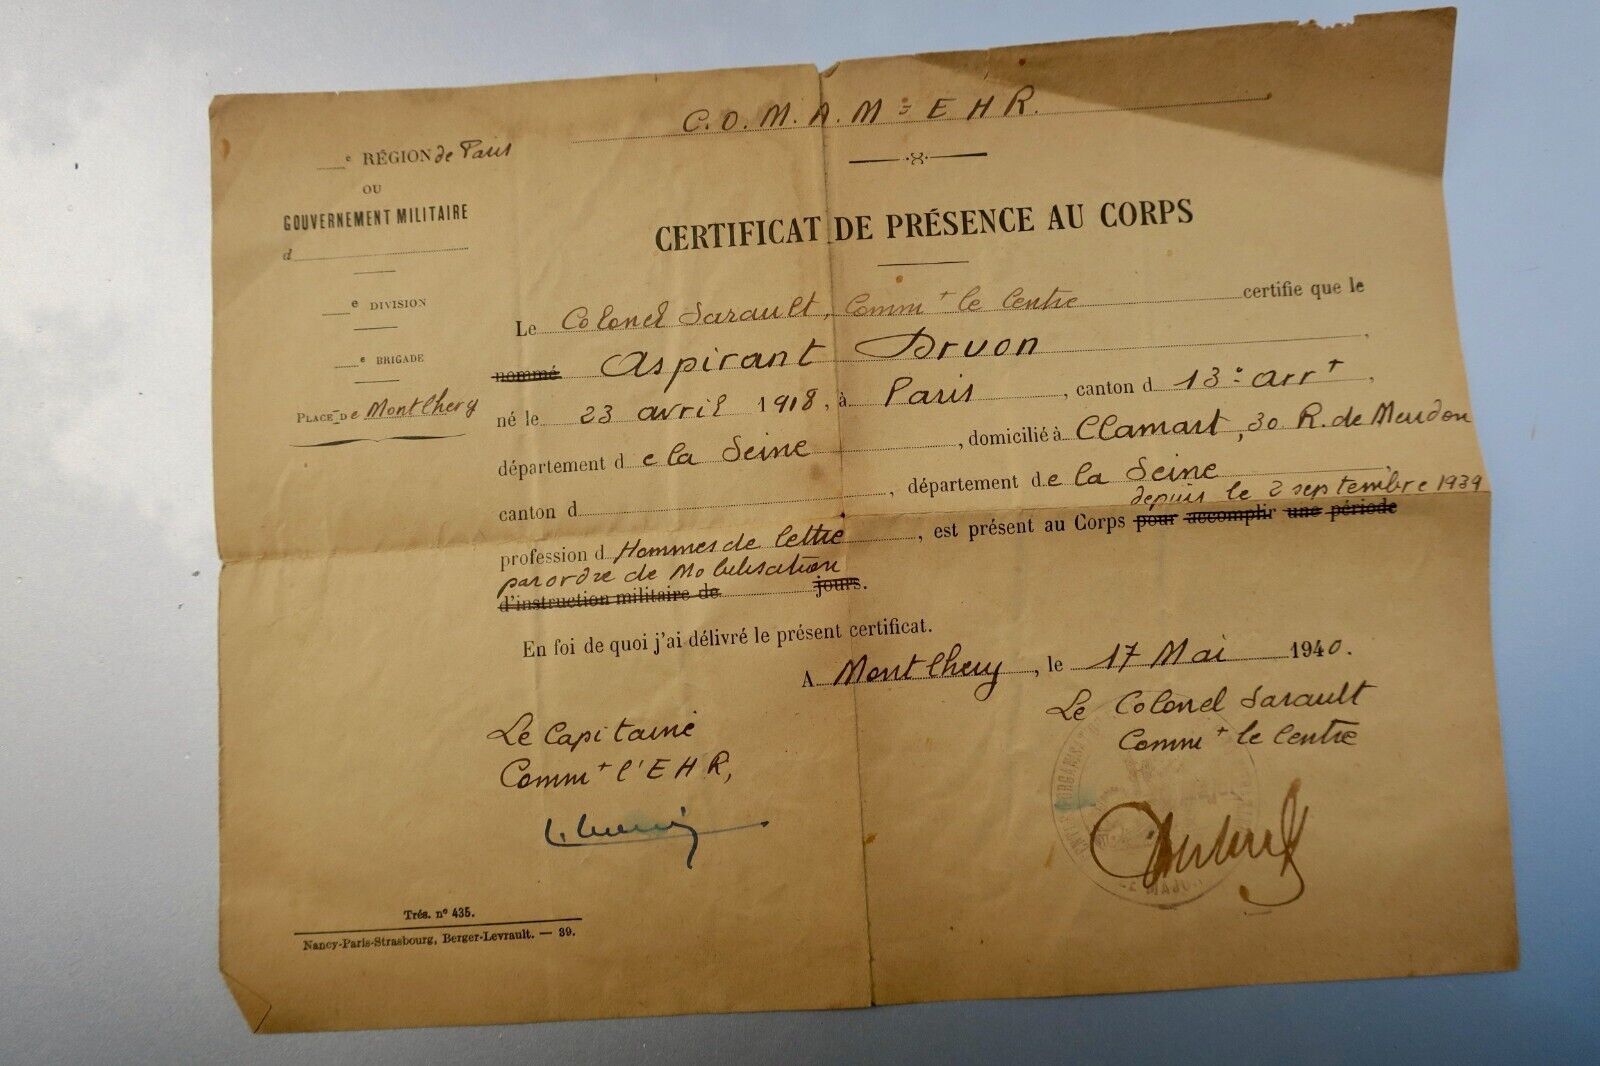 C.O.M.A.M = E H R.
e RÉGION de Paris
OU
GOUVERNEMENT MILITAIRE
d
e DIVISION
e BRIGADE
PLACE De Montlhery
CERTIFICAT DE PRÉSENCE AU CORPS
Le Colonel Sarault, Commt le Centre certifie que le
nommé Aspirant Druon,
né le 23 avril 1918, à Paris, canton d 13e arrt,
département de la Seine, domicilié à Clamart, 30 R. de Meudon
canton d, département de la Seine
depuis le 2 septembre 1939
profession d Hommes de lettre, est présent au Corps pour accomplir une période
par ordre de Mobilisation
d'instruction militaire de jours.
En foi de quoi j'ai délivré le présent certificat.
A Montlhery, le 17 Mai 1940.
Le Capitaine
Commt l'E H R,
Le Colonel Sarault
Commt le Centre
Trés. nº 435.
Nancy-Paris-Strasbourg, Berger-Levrault. — 39.